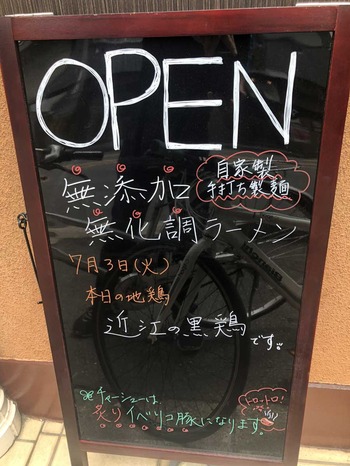 OPEN
自家製
手打ち製麺
無添加
無化調ラーメン
7月3日(火)
本日の地鶏
近江の黒鶏です。
※チャーシューは、
炙りイベリコ豚になります。
トロットロ!